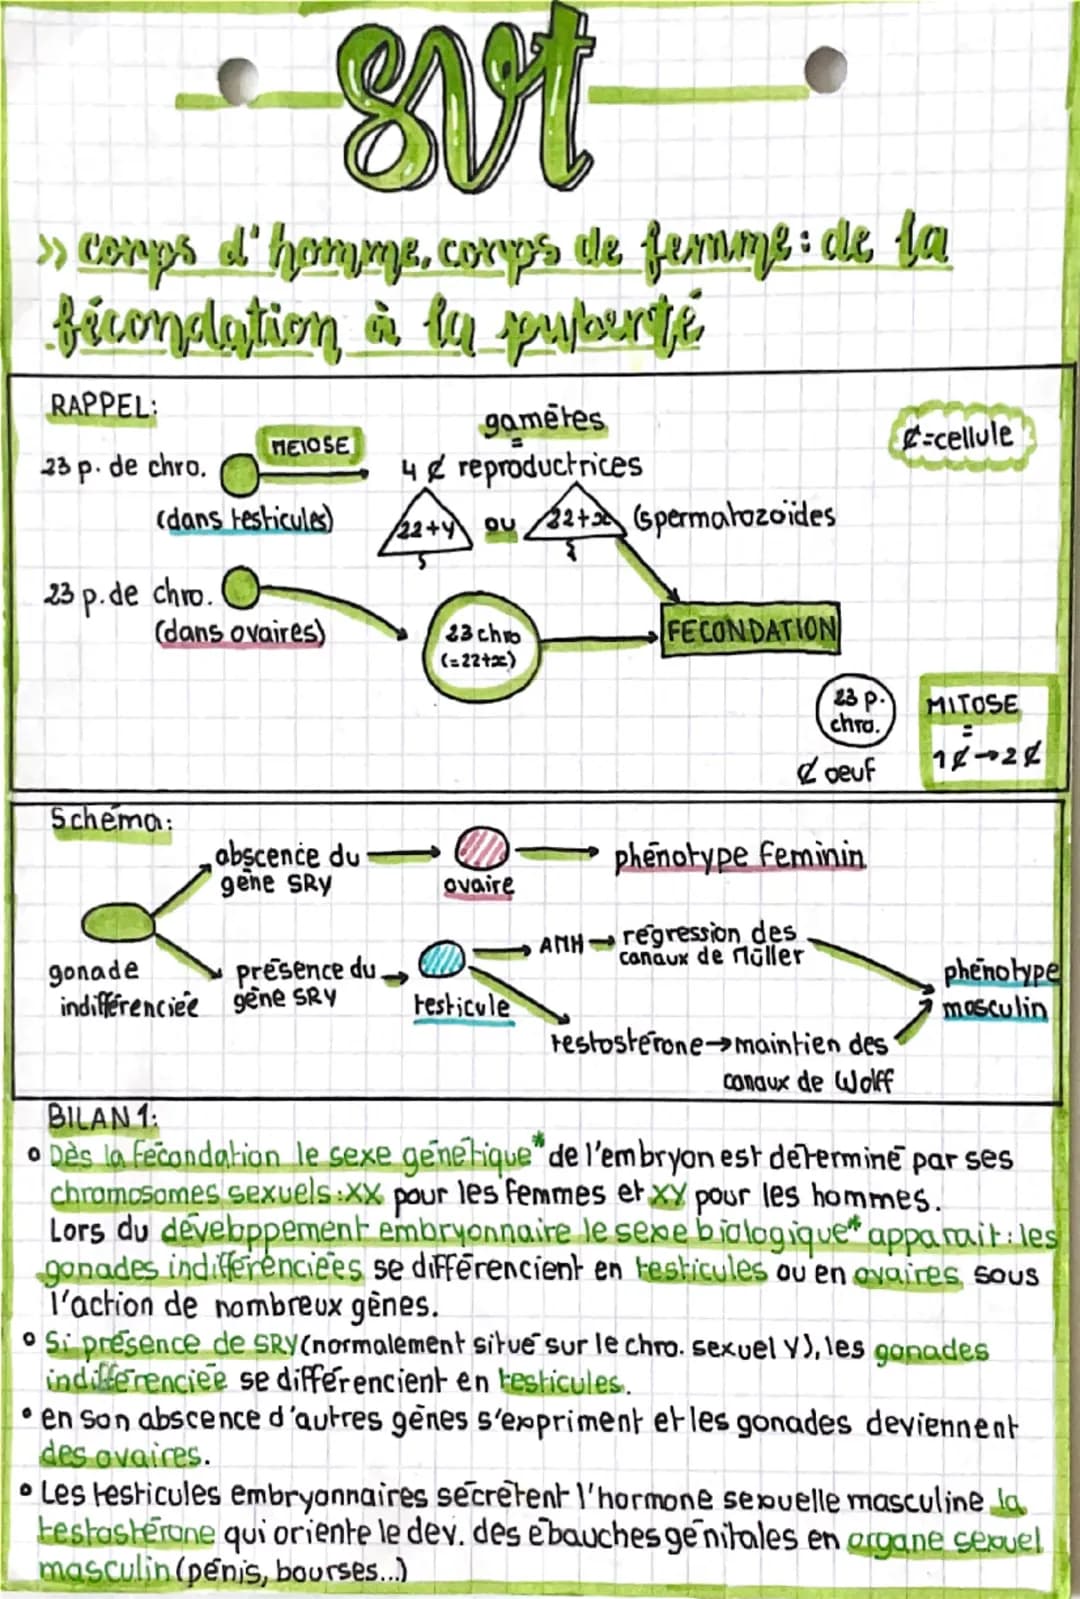 svt
>> corps d'homme, corps de femme : de la
fécondation à la puberté
RAPPEL:
gamètes
=
₵=cellule
23 p. de chro.
MEIOSE
4 ₵ reproductrices
(dans testicules)
22+Y
ou
22+x
(spermatozoïdes
23 p. de chro.
(dans ovaires)
23 chro
(=22+x)
FECONDATION
23 p.
chro.
₵ oeuf
MITOSE
=
1₵→2₵
Schéma:
abscence du
gène SRY
ovaire
phénotype feminin
gonade
indifférenciée
présence du
gène SRY
testicule
AMH → régression des
canaux de Müller
testostérone→maintien des
canaux de Wolff
phénotype
masculin
BILAN 1:
° Dès la fécondation le sexe génétique* de l'embryon est déterminé par ses
chromosomes sexuels : XX pour les femmes et XY pour les hommes.
Lors du développement embryonnaire le sexe biologique* apparait : les
gonades indifférenciées se différencient en testicules ou en ovaires sous
l'action de nombreux gènes.
° Si présence de SRY (normalement situé sur le chro. sexuel Y), les gonades
indifférenciée se différencient en testicules.
° en son abscence d'autres gènes s'expriment et les gonades deviennent
des ovaires.
° Les testicules embryonnaires sécrètent l'hormone sexuelle masculine la
testostérone qui oriente le dev. des ébauches génitales en organe sexuel
masculin (pénis, bourses...)